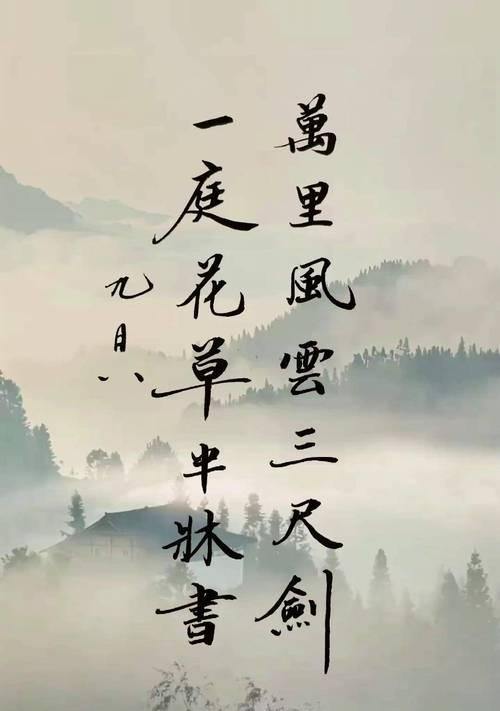 萬里風雲三尺劍
一庭花草半牀書
九月八